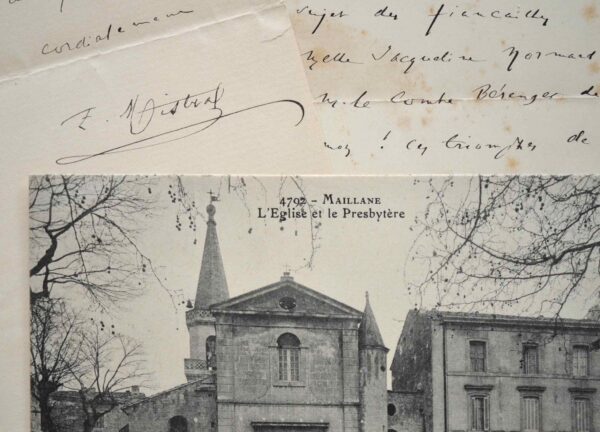 cordialement
F. Mistral
sujet des fiançailles
Melle Jacqueline Normant
M. le Comte Bérenger de
! ces triomphes de
4792 - MAILLANE
L'Eglise et le Presbytère